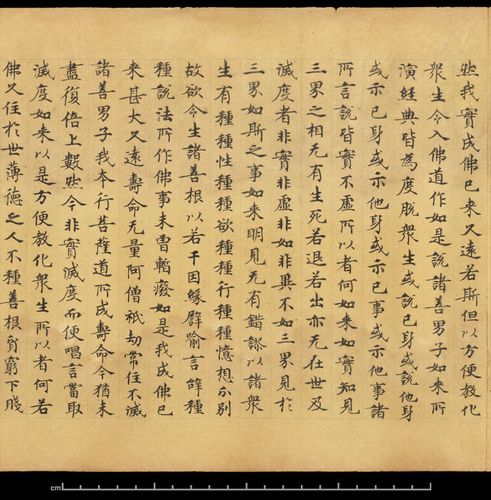 然我實成佛已来久遠若斯但以方便教化
衆生令入佛道作如是說諸善男子如来所
演經典皆為度脫衆生或說已身或說他身
或示已身或示他身或示已事或示他事諸
所言說皆實不虛所以者何如来如實知見
三界之相无有生死若退若出亦无在世及
滅度者非實非虛非如非異不如三界見於
三界如斯之事如来明見无有錯謬以諸衆
生有種種性種種欲種種行種種憶想分別
故欲令生諸善根以若干因緣譬喻言辝種
種說法所作佛事未曾暫廢如是我成佛已
来甚大久遠壽命无量阿僧祇劫常住不滅
諸善男子我本行菩薩道所成壽命今猶未
盡復倍上數然今非實滅度而便唱言當取
滅度如来以是方便教化衆生所以者何若
佛久住於世薄德之人不種善根貧窮下賤
cm